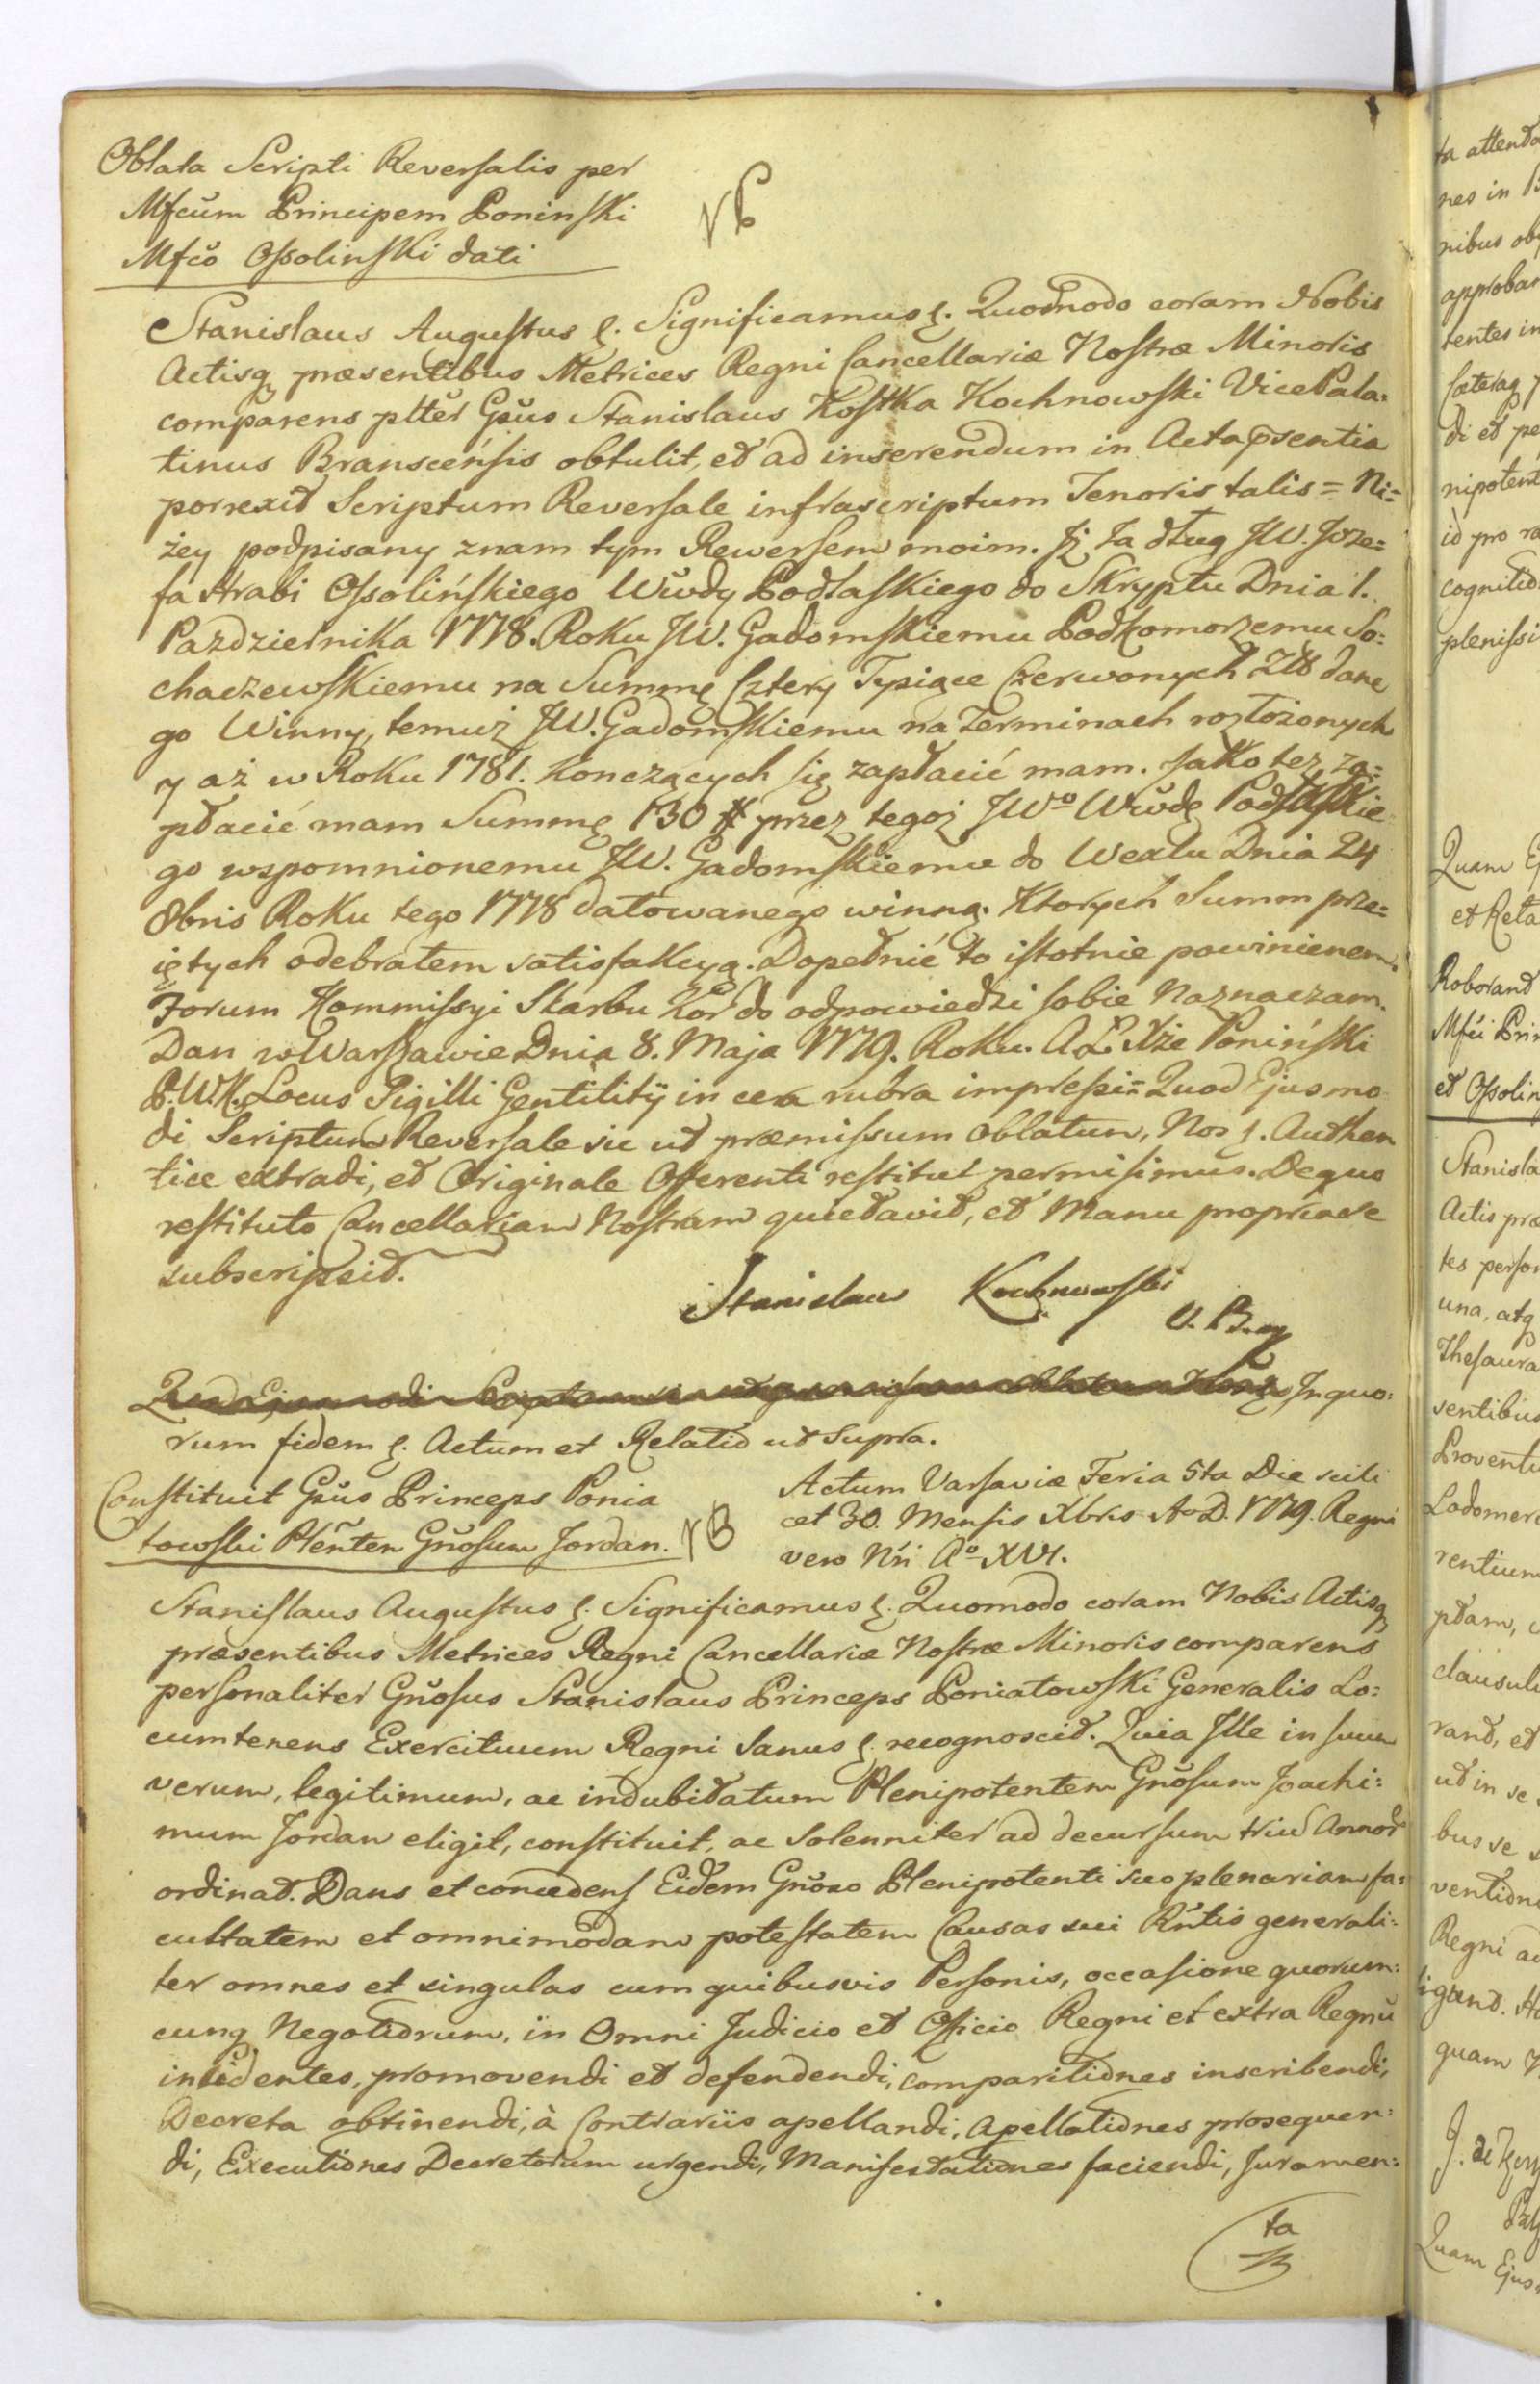 Oblata Scripti Reversalis per
Mfcum Principem Poninski
Mfco Ossolinski dati
NB
Stanislaus Augustus &. Significamus &. Quomodo coram Nobis
Actisq præsentibus Metrices Regni Cancellariæ Nostræ Minoris
comparens pltter Gsus Stanislaus Kostka Kochnowski VicePala=
tinus Branscensis obtulit, et ad inserendum in Acta psentia
porrexit Scriptum Reversale infrascriptum Tenoris talis = Ni=
żey podpisany znam tym Rewersem moim. Jż Ja dług JW. Joze=
fa Hrabi Ossolińskiego Wwdy Podlaskiego do Skryptu Dnia 1.
Pazdziernika 1778. Roku JW. Gadomskiemu Podkomorzemu So=
chaczewskiemu na Summę Cztery Tysiące Czerwonych Złł dane
go Winny, temuż JW. Gadomskiemu na Terminach rozłożonych
y aż w Roku 1781. konczących się zapłacić mam. Jako też za=
płacić mam Summę 130 # przez tegoż JWo Wwdę Podlaskie
go wspomnionemu JW. Gadomskiemu do Wexlu Dnia 24
8bris Roku tego 1778 datowanego winną. Ktorych Summ prze=
iętych odebrałem satisfakcyą. Dopełnić to istotnie powinienem.
Forum Kommissyi Skarbu Kor do odpowiedzi sobie Naznaczam.
Dan w Warszawie Dnia 8. Maja 1779. Roku. A Ł Xże Poniński
P.W.K. Locus Sigilli Gentilitij in cera rubra impressi = Quod Ejusmo
di Scriptum Reversale sic ut præmissum oblatum, Nos &. Authen
tice extradi, et Originale Offerenti restitui permisimus. De quo
restituto Cancellariam Nostram quietavit, et Manu propria se
subscripsit.
Stanislaus Kochnowski
V. B. mp
Quod Ejusmodi Scriptum sic ut præmissum oblatum Nos & Jn quo=
rum fidem &. Actum et Relatio ut supra.
Constituit Gsus Princeps Ponia
towski Plenten Gnosum Jordan.
NB
Actum Varsaviæ Feria 5ta Die scili
cet 30. Mensis Xbris Ao D. 1779. Regni
vero Nri Ao XVI.
Stanislaus Augustus &. Significamus &. Quomodo coram Nobis Actisq
præsentibus Metrices Regni Cancellariæ Nostræ Minoris comparens
personaliter Gnosus Stanislaus Princeps Poniatowski Generalis Lo=
cumtenens Exercituum Regni Sanus &. recognoscit. Quia Jlle in suum
verum, legitimum, ac indubitatum Plenipotentem Gnosum Joachi=
mum Jordan eligit, constituit, ac Solenniter ad decursum triu Annor
ordinat. Dans et concedens Eidem Gnoso Plenipotenti suo plenariam fa=
cultatem et omnimodam potestatem Causas sui Rntis generali=
ter omnes et singulas cum quibusvis Personis, occasione quorum=
cunq Negotiorum, in Omni Judicio et Officio Regni et extra Regnu
incidentes, promovendi et defendendi, comparitiones inscribendi,
Decreta obtinendi, à Contrariis apellandi, Apellationes prosequen=
di, Executiones Decretorum urgendi, Manifestationes faciendi, Juramen=
ta
ta attenda
nes in
nibus ob
approbar
tentes in
Cæteraq
di et pe
nipotent
id pro ra
cognitio
plenissi
Quam Ej
et Rela
Roborand
Mfci Prin
et Ossolin
Stanisla
Actis præ
tes person
una, atq
Thesaura
sentibus
Proventu
Lodomer
rentium
ptam,
clausul
rand, et
ut in se
bus se
ventione
Regni ac
ligand.
quam
Quam Ejus